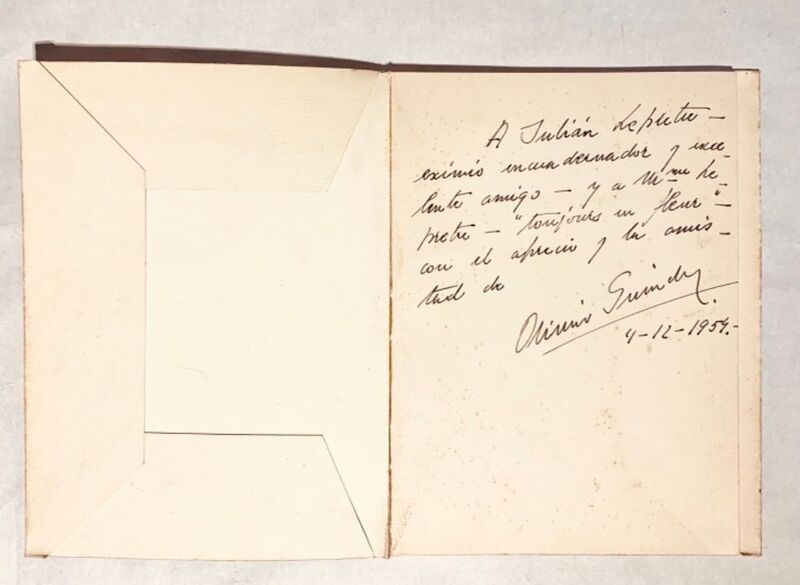 A Julián Lepretre —
eximio encuadernador y exce-
lente amigo — y a Mme Le-
pretre — "toujours en fleur" —
con el aprecio y la amis-
tad de
4-12-1954.-